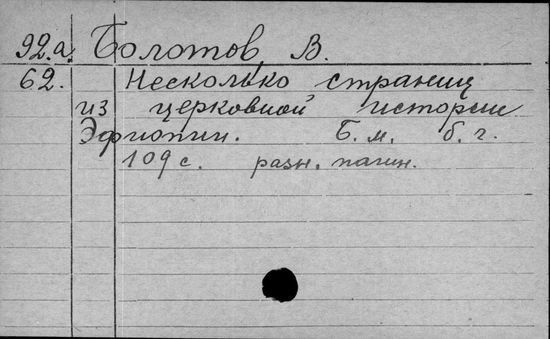 92.a. Болотов, В.
62. Несколько страниц
из церковной истории
Эфиопии. Б.м. б.г.
109 с. разн. пагин.